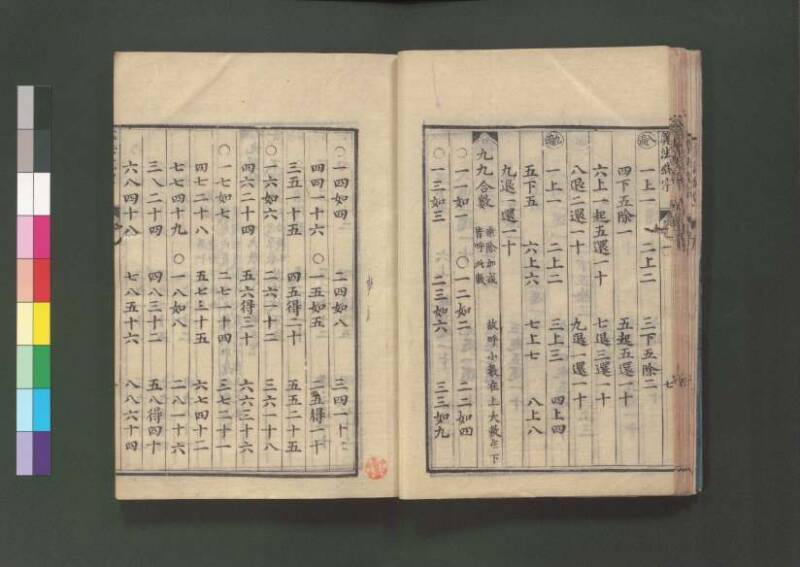 一上一 二上二 三下五除二
四下五除一 五起五還一十
六上一起五還一十 七退三還一十
八退二還一十 九退一還一十
一上一 二上二 三上三 四上四
五下五 六上六 七上七 八上八
九退一還一十
九九合數 乘除加減皆呼此數 故呼小數在上大數在下
〇一一如一 〇一二如二 二二如四
〇一三如三 二三如六 三三如九
〇一四如四 二四如八 三四一十二
四四一十六 〇一五如五 二五得一十
三五一十五 四五得二十 五五二十五
〇一六如六 二六一十二 三六一十八
四六二十四 五六得三十 六六三十六
〇一七如七 二七一十四 三七二十一
四七二十八 五七三十五 六七四十二
七七四十九 〇一八如八 二八一十六
三八二十四 四八三十二 五八得四十
六八四十八 七八五十六 八八六十四